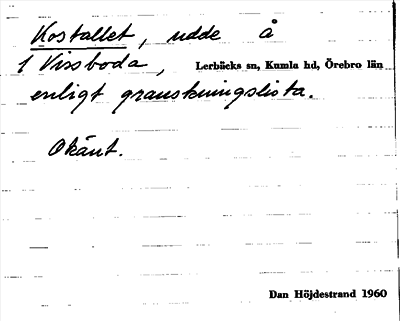 Kostallet, udde å
1 Vissboda, Lerbäcks sn, Kumla hd, Örebro län
enligt granskningslista.
Okänt.
Dan Höjdestrand 1960